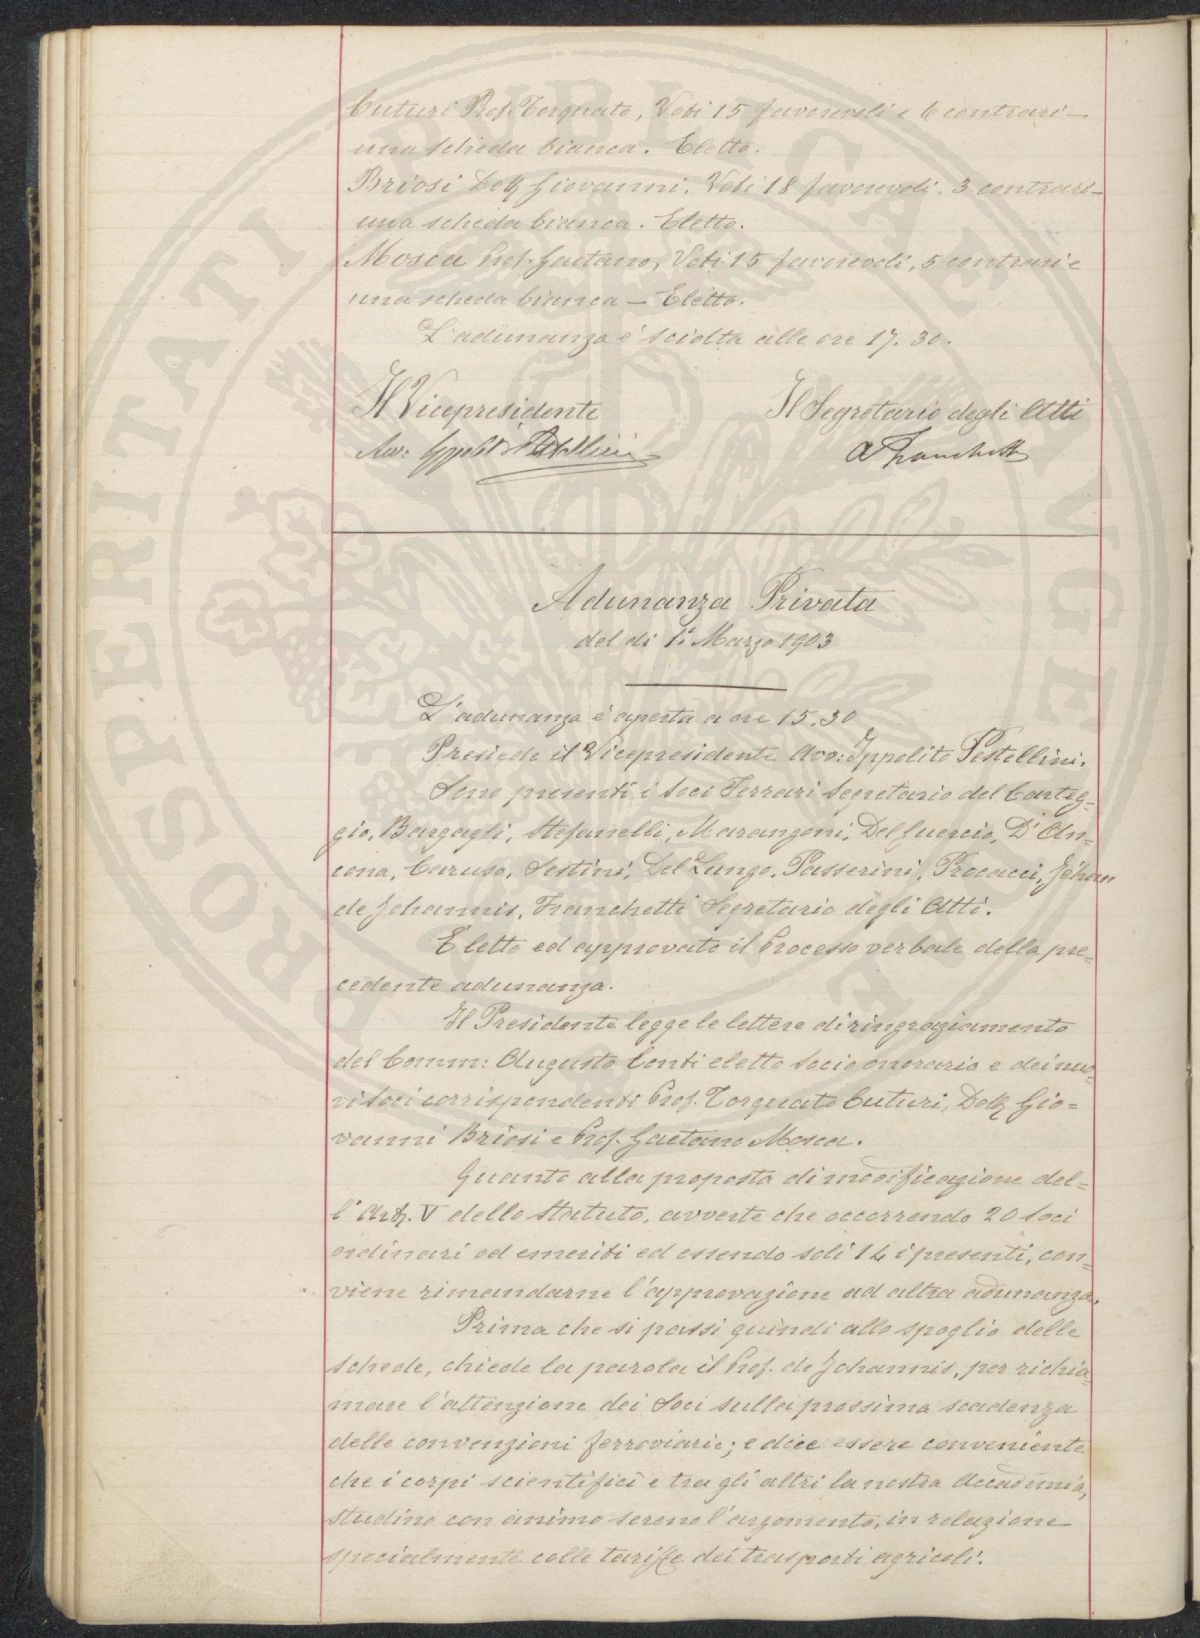 Cuturi Prof. Torquato, Voti 15 favorevoli e 6 contrari –
una scheda bianca. Eletto.
Briosi Dott. Giovanni. Voti 18 favorevoli. 3 contrari –
una scheda bianca. Eletto.
Mosca Prof. Gaetano, Voti 15 favorevoli, 5 contrari e
una scheda bianca – Eletto.
L'adunanza è sciolta alle ore 17.30.
Il Vicepresidente
Il Segretario degli Atti
Avv: Ippolito Pestellini
A Franchetti
Adunanza Privata
del dì 1° Marzo 1903
L'adunanza è aperta a ore 15.30
Presiede il Vicepresidente Avv: Ippolito Pestellini.
Sono presenti i Soci Ferrari Segretario del Carteg=
gio, Bargagli, Stefanelli, Marangoni, Del Guercio, D'An=
cona, Caruso, Sestini, Del Lungo, Passerini, Procacci, Jéhan
de Johannis, Franchetti Segretario degli Atti.
È letto ed approvato il Processo verbale della pre=
cedente adunanza.
Il Presidente legge le lettere di ringraziamento
del Comm: Augusto Conti eletto Socio onorario e dei nuo=
vi Soci corrispondenti Prof. Torquato Cuturi, Dott. Gio=
vanni Briosi e Prof. Gaetano Mosca.
Quanto alla proposta di modificazione del=
l'Art. V dello Statuto, avverte che occorrendo 20 Soci
ordinari ed emeriti ed essendo soli 14 i presenti, con=
viene rimandarne l'approvazione ad altra adunanza.
Prima che si passi quindi allo spoglio delle
schede, chiede la parola il Prof. de Johannis, per richia=
mare l'attenzione dei Soci sulla prossima scadenza
delle convenzioni ferroviarie; e dice essere conveniente
che i corpi scientifici e tra gli altri la nostra Accademia,
studino con animo sereno l'argomento, in relazione
specialmente colle tariffe dei trasporti agricoli.
PROSPERITATI PUBLICAE AVGE